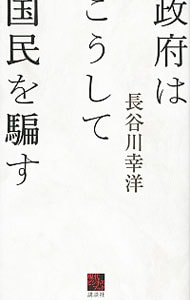 政府は
こうして
国民を騙す
長谷川幸洋
講談社